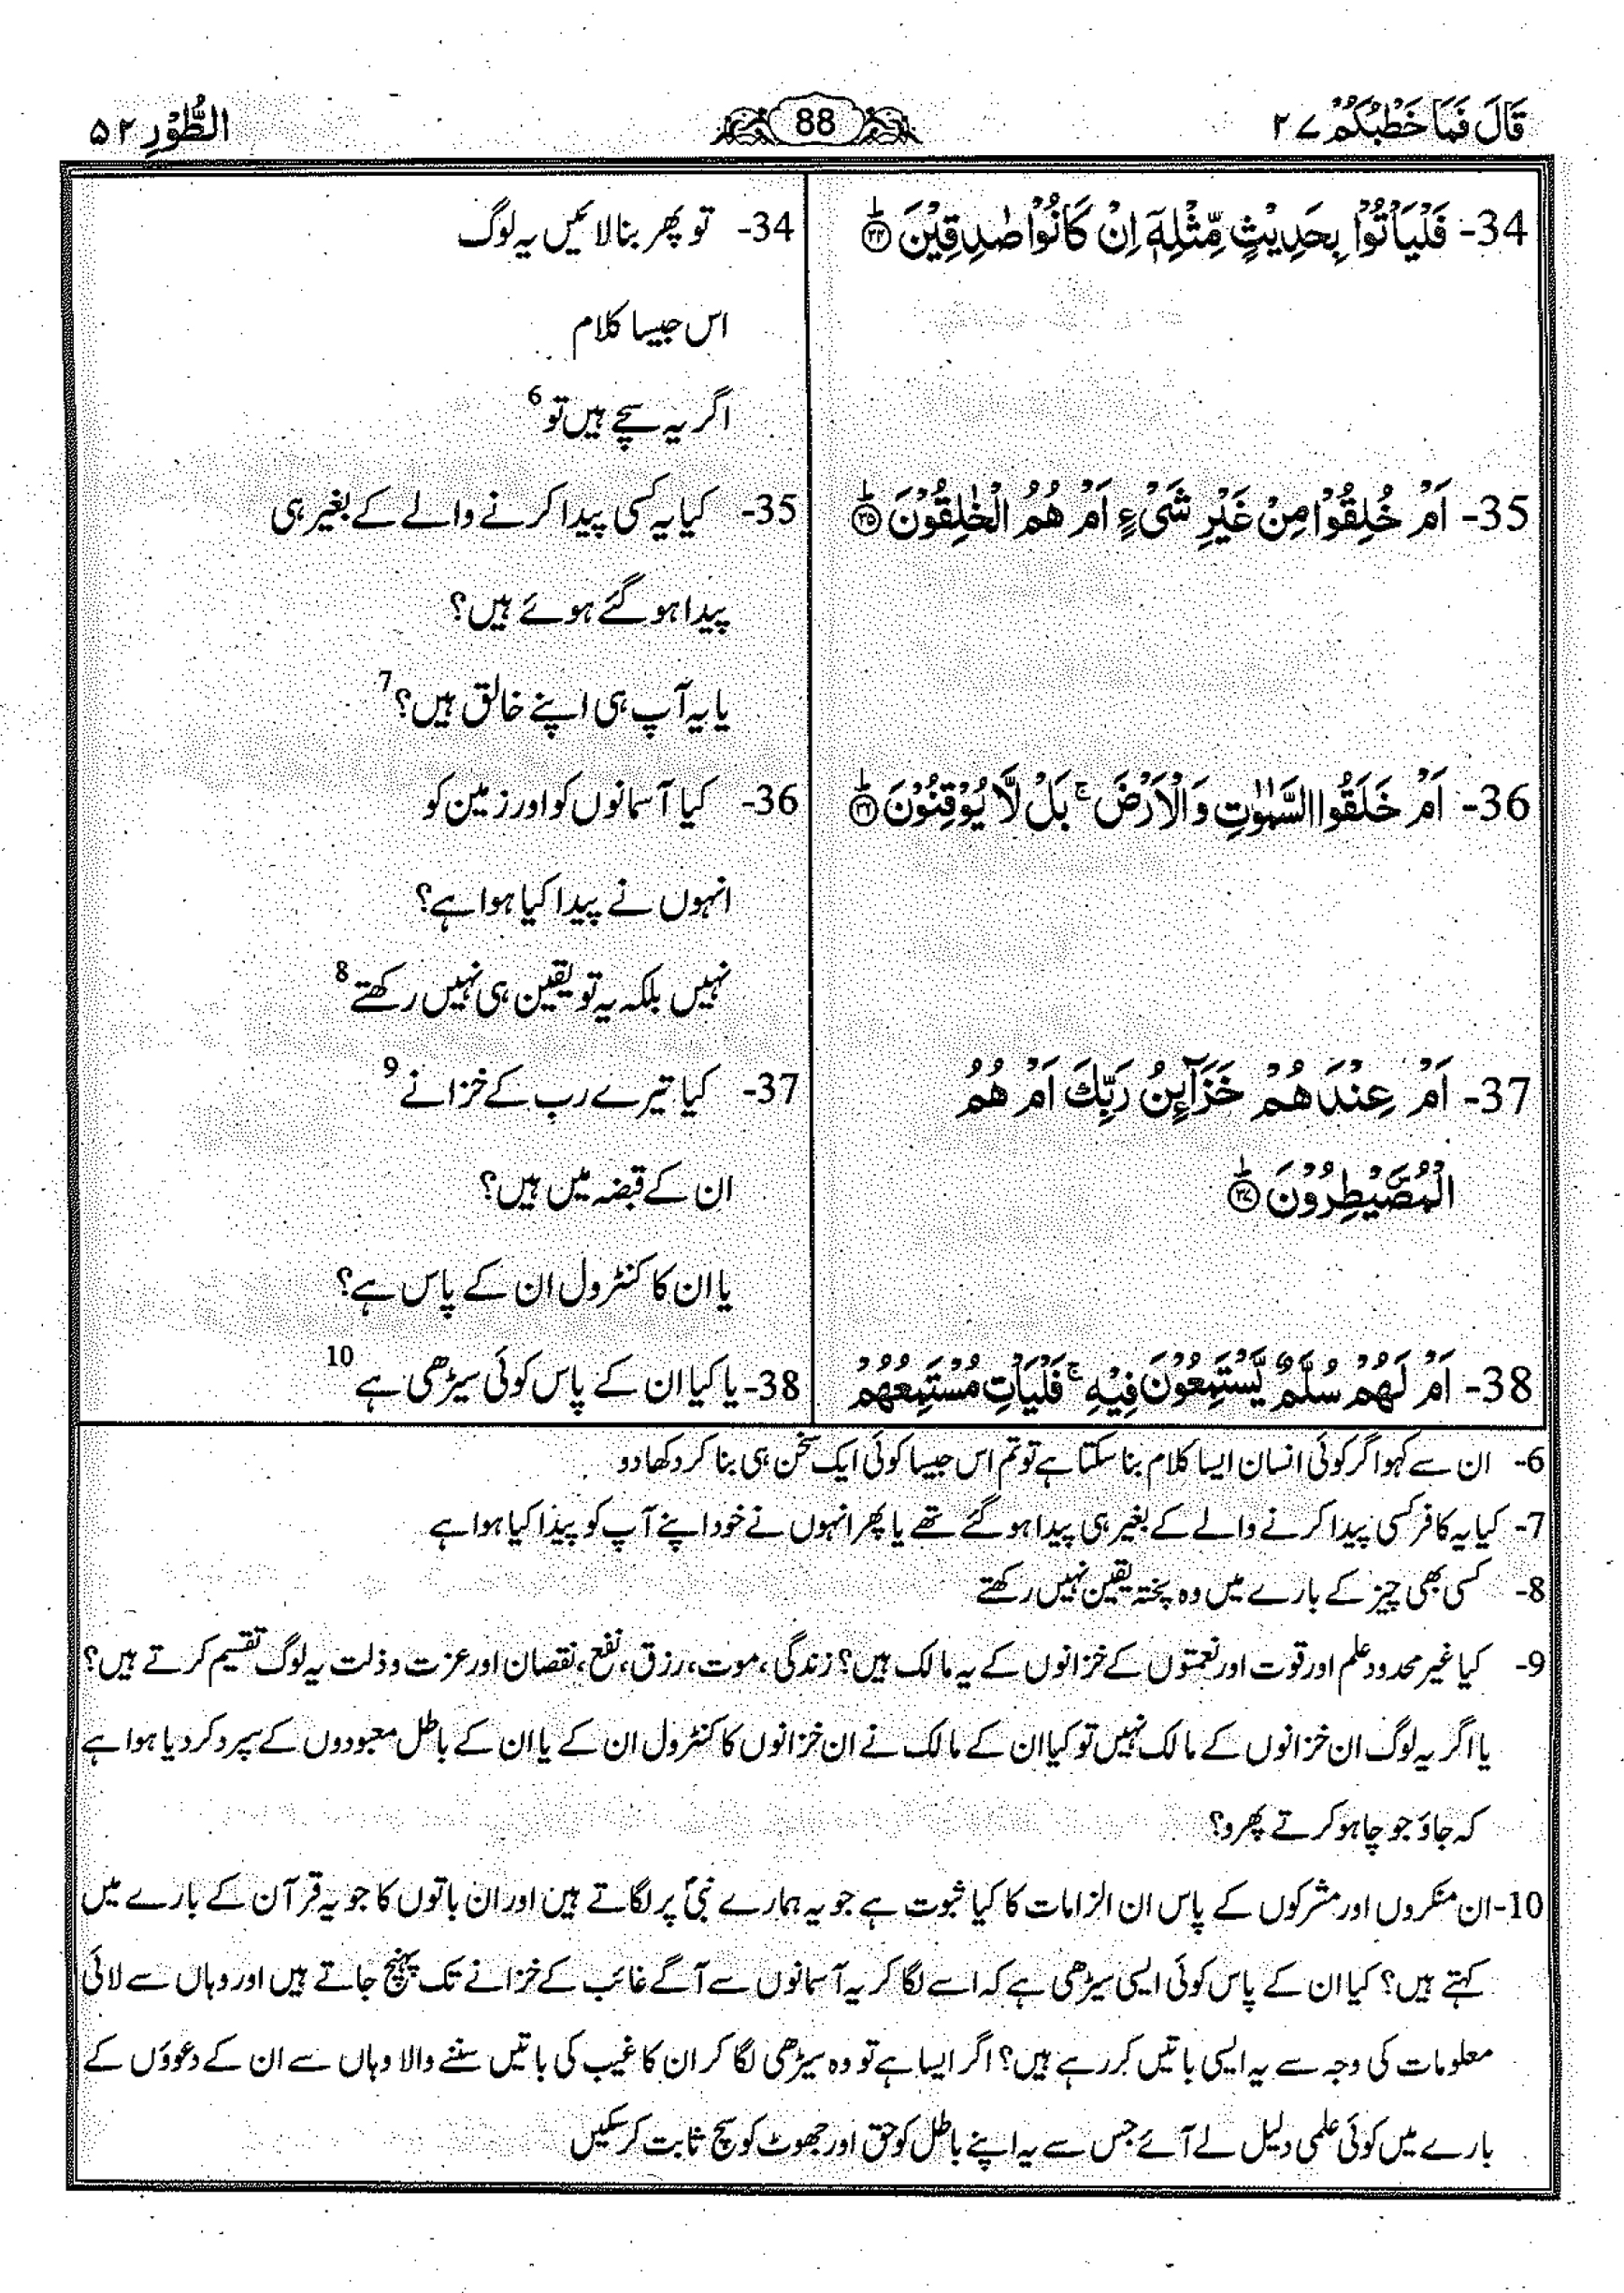 قَالَ فَمَا خَطْبُكُمْ ۲۷
88
الطُّوْرِ ۵۲
34- فَلْيَاْتُوْا بِحَدِيْثٍ مِّثْلِهٖۤ اِنْ كَانُوْا صٰدِقِيْنَ ؕ۳۴
34- تو پھر بنا لائیں یہ لوگ
اس جیسا کلام
اگر یہ سچے ہیں تو 6
35- اَمْ خُلِقُوْا مِنْ غَيْرِ شَیْءٍ اَمْ هُمُ الْخٰلِقُوْنَ ؕ۳۵
35- کیا یہ کسی پیدا کرنے والے کے بغیر ہی
پیدا ہو گئے ہوئے ہیں؟
یا یہ آپ ہی اپنے خالق ہیں؟ 7
36- اَمْ خَلَقُوا السَّمٰوٰتِ وَالْاَرْضَ ۚ بَلْ لَّا يُوْقِنُوْنَ ؕ۳۶
36- کیا آسمانوں کو اور زمین کو
انہوں نے پیدا کیا ہوا ہے؟
نہیں بلکہ یہ تو یقین ہی نہیں رکھتے 8
37- اَمْ عِنْدَهُمْ خَزَآئِنُ رَبِّكَ اَمْ هُمُ
الْمُصَۜيْطِرُوْنَ ؕ۳۷
37- کیا تیرے رب کے خزانے 9
ان کے قبضہ میں ہیں؟
یا ان کا کنٹرول ان کے پاس ہے؟
38- اَمْ لَهُمْ سُلَّمٌ يَّسْتَمِعُوْنَ فِيْهِ ۚ فَلْيَاْتِ مُسْتَمِعُهُمْ
38- یا کیا ان کے پاس کوئی سیڑھی ہے 10
6- ان سے کہو اگر کوئی انسان ایسا کلام بنا سکتا ہے تو تم اس جیسا کوئی ایک سخن ہی بنا کر دکھا دو
7- کیا یہ کافر کسی پیدا کرنے والے کے بغیر ہی پیدا ہو گئے تھے یا پھر انہوں نے خود اپنے آپ کو پیدا کیا ہوا ہے
8- کسی بھی چیز کے بارے میں وہ پختہ یقین نہیں رکھتے
9- کیا غیر محدود علم اور قوت اور نعمتوں کے خزانوں کے یہ مالک ہیں؟ زندگی، موت، رزق، نفع، نقصان اور عزت و ذلت یہ لوگ تقسیم کرتے ہیں؟
یا اگر یہ لوگ ان خزانوں کے مالک نہیں تو کیا ان کے مالک نے ان خزانوں کا کنٹرول ان کے یا ان کے باطل معبودوں کے سپرد کر دیا ہوا ہے
کہ جاؤ جو چاہو کرتے پھرو؟
10- ان منکروں اور مشرکوں کے پاس ان الزامات کا کیا ثبوت ہے جو یہ ہمارے نبیؐ پر لگاتے ہیں اور ان باتوں کا جو یہ قرآن کے بارے میں
کہتے ہیں؟ کیا ان کے پاس کوئی ایسی سیڑھی ہے کہ اسے لگا کر یہ آسمانوں سے آگے غائب کے خزانے تک پہنچ جاتے ہیں اور وہاں سے لائی
معلومات کی وجہ سے یہ ایسی باتیں کر رہے ہیں؟ اگر ایسا ہے تو وہ سیڑھی لگا کر ان کا غیب کی باتیں سننے والا وہاں سے ان کے دعوؤں کے
بارے میں کوئی علمی دلیل لے آئے جس سے یہ اپنے باطل کو حق اور جھوٹ کو سچ ثابت کر سکیں